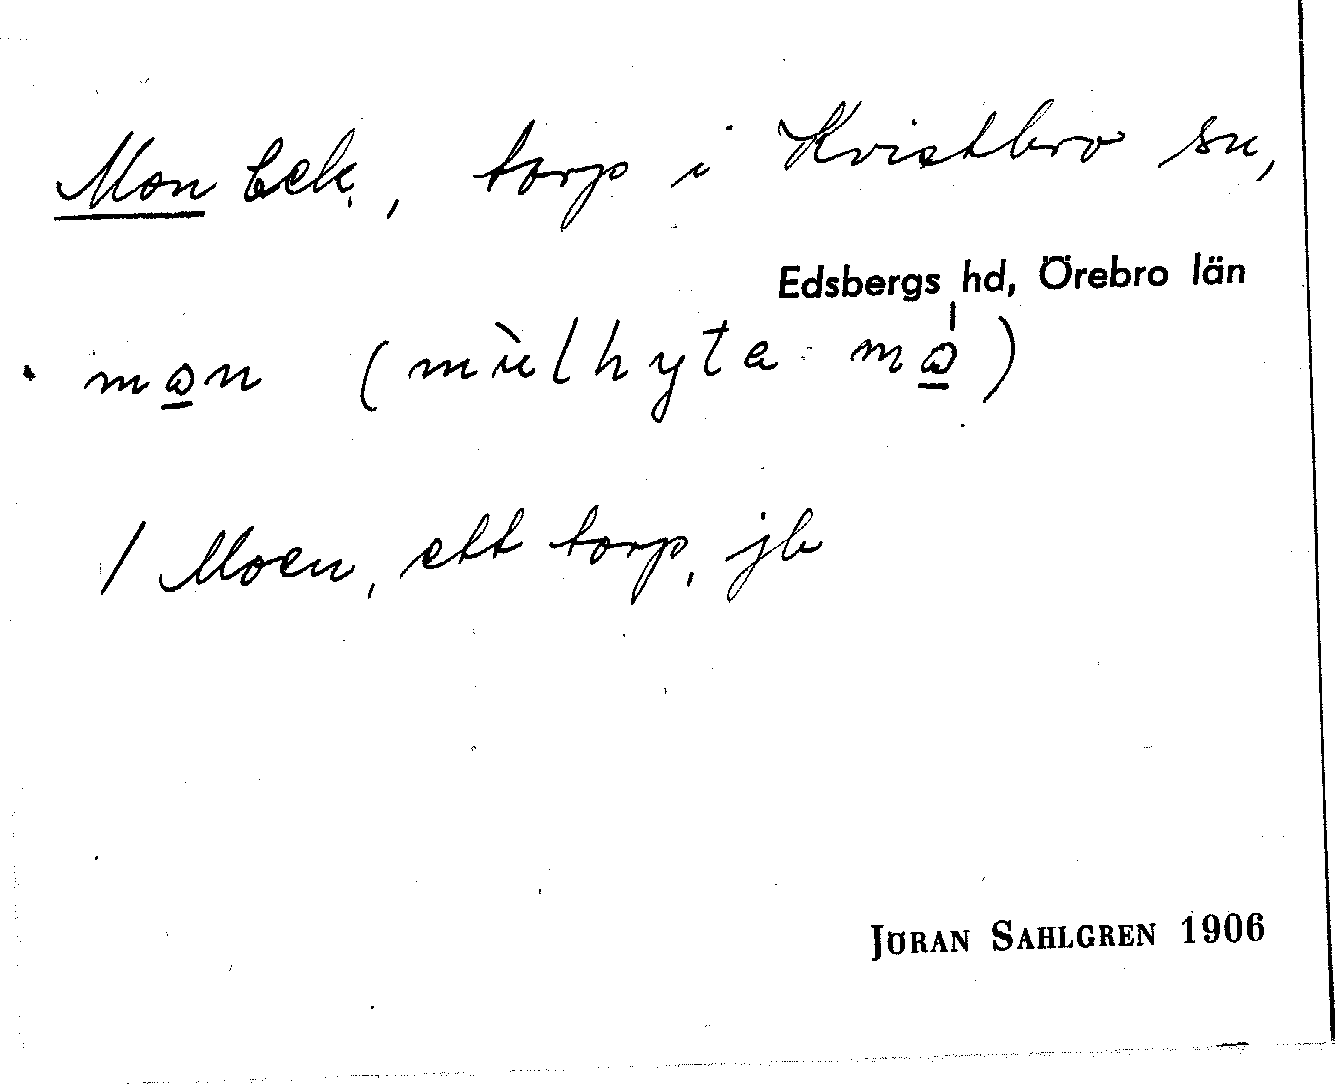 Mon bek., torp i Kvistbro sn,
Edsbergs hd, Örebro län
mo̲n (mùlhyta mo̲̍)
/ Moen, ett torp, jb
JÖRAN SAHLGREN 1906